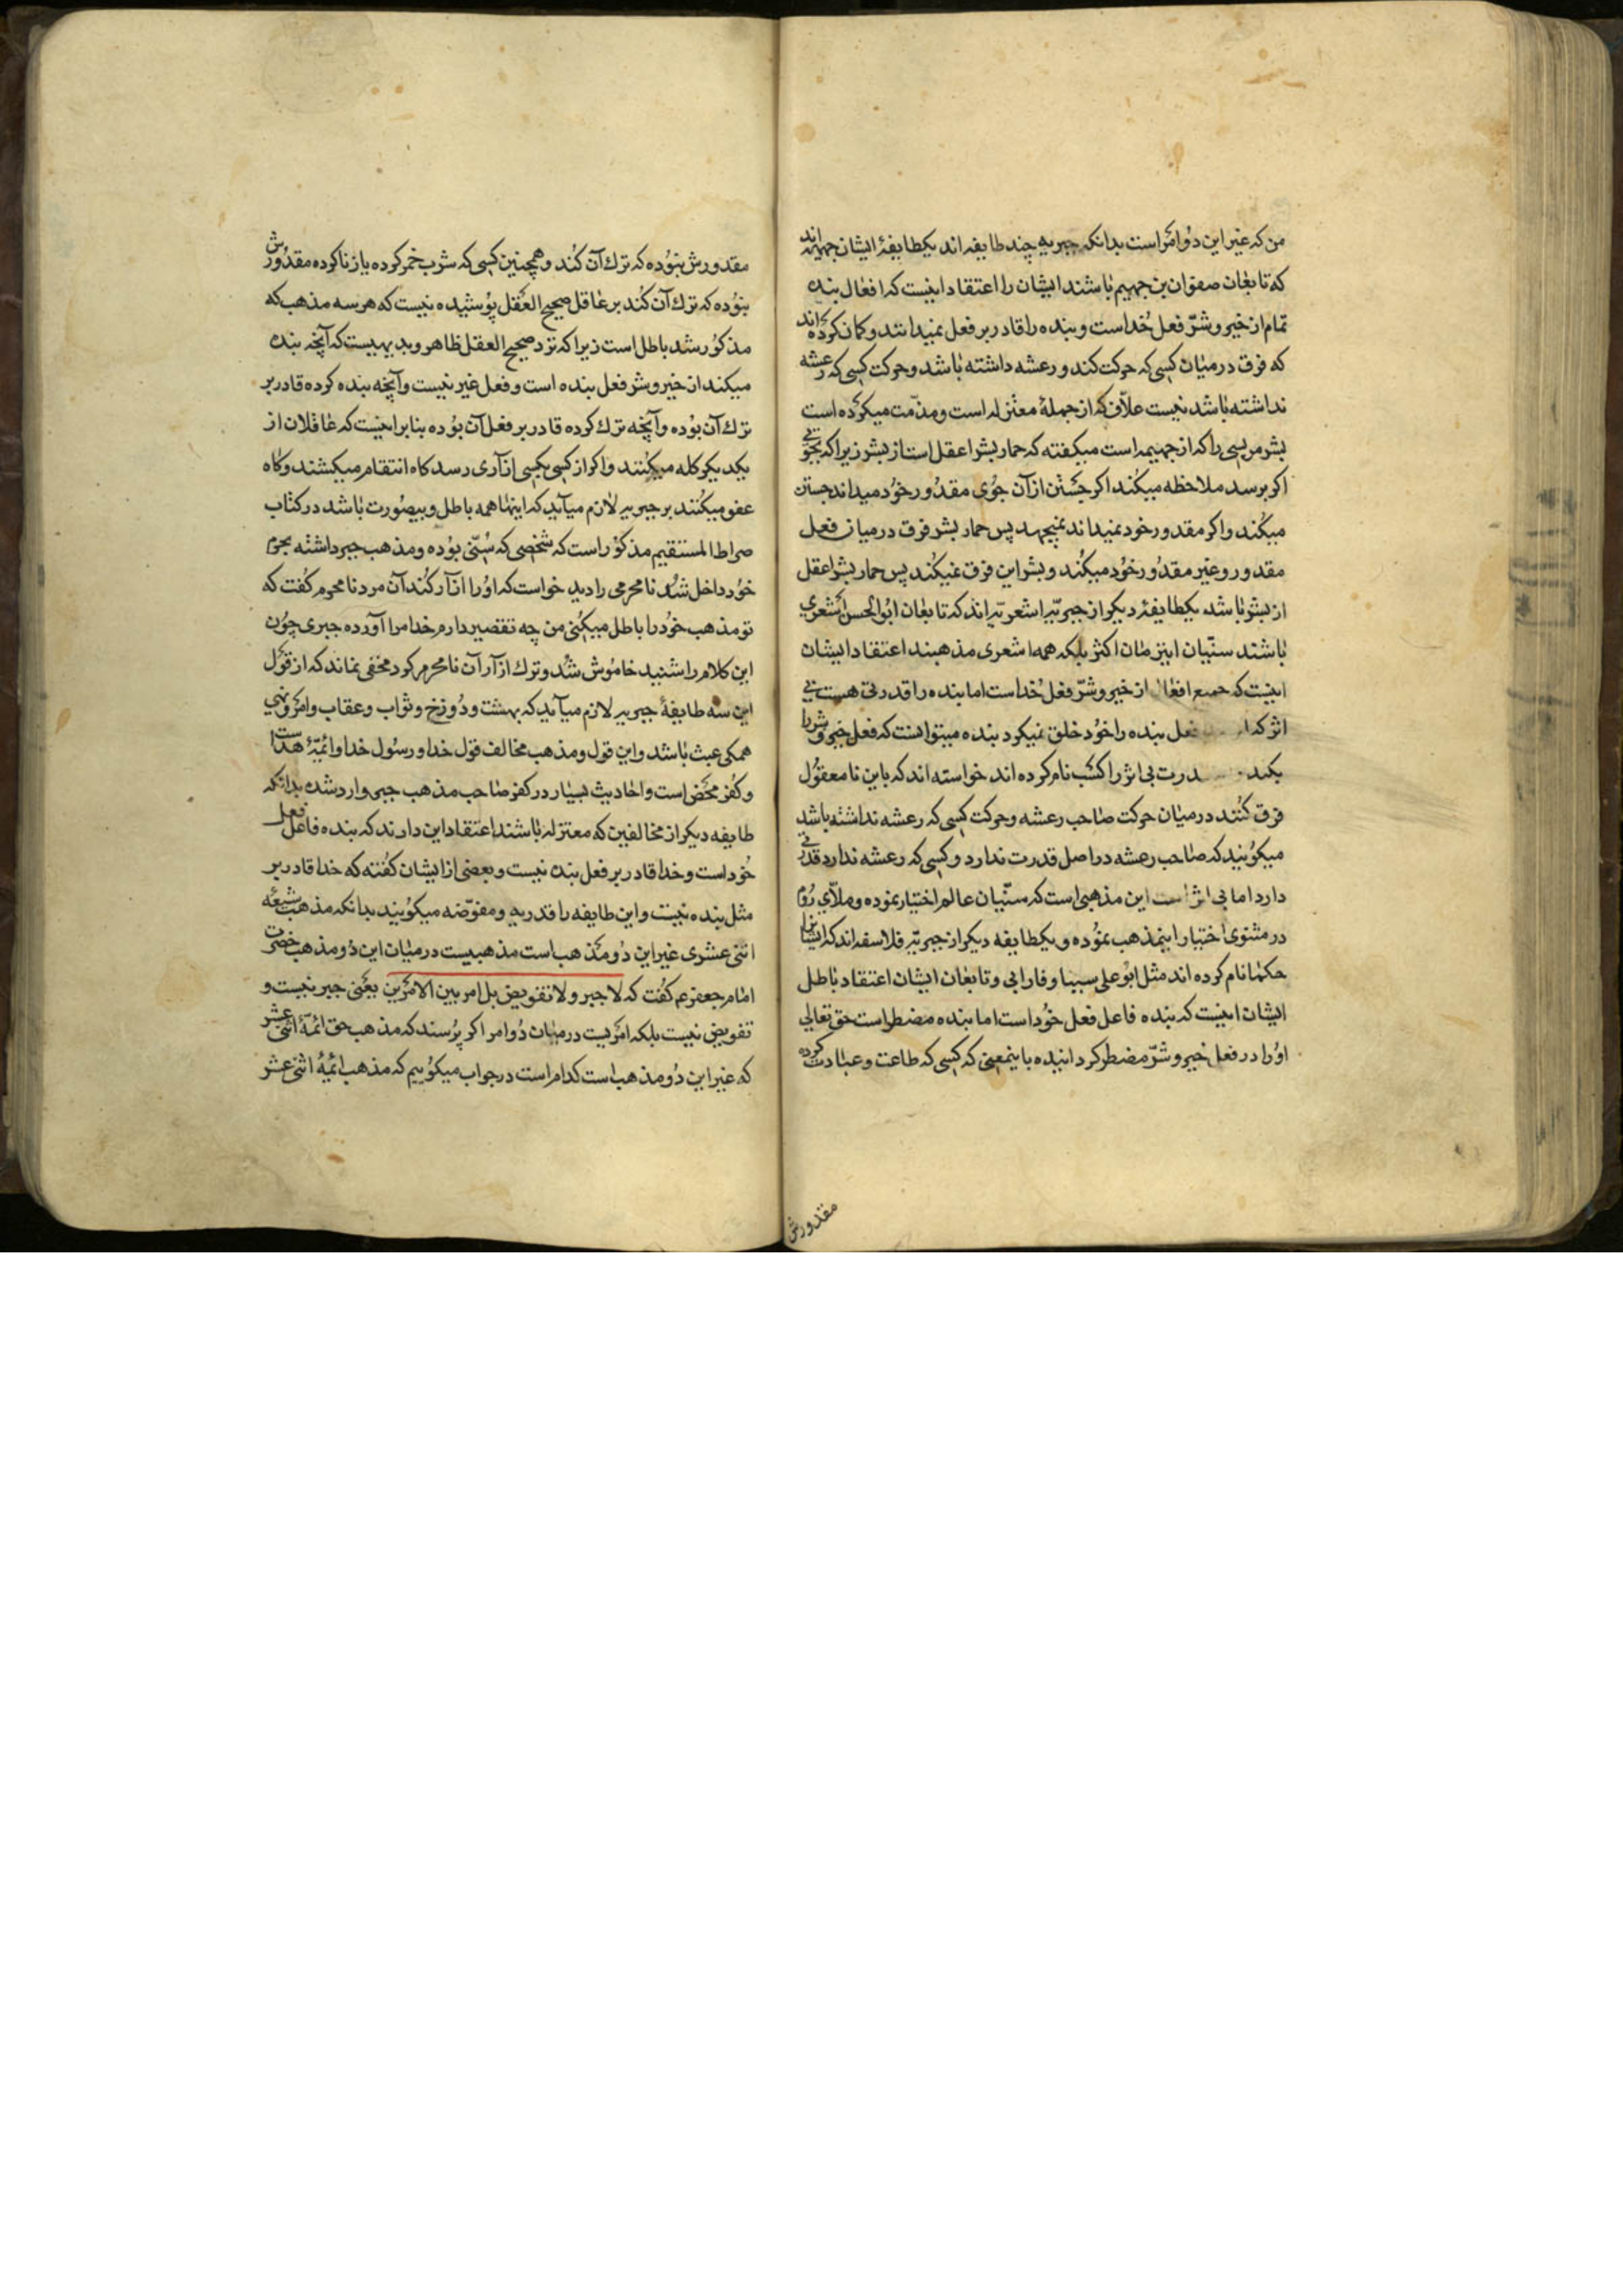 من که غیر این دو امر است بدانکه جبریه چند طایفه اند یکطایفهٔ ایشان جهمیه اند
که تابعان صفوان بن جهیم باشند ایشان را اعتقاد اینست که افعال بنده
تمام از خیر و شرّ فعل خداست و بنده را قادر بر فعل نمیدانند و کمان کرده اند
که فرق در میان کسی که حرکت کند و رعشه داشته باشد و حرکت کسی که رعشه
نداشته باشد نیست علاّف که از جملهٔ معتزله است و مذمّت میکرده است
بشر مریسی را که از جهیمیه است میکفته که حمار بشر اعقل است از بشر زیرا که بجوئی
اکر برسد ملاحظه میکند اکر جستن از آن جوی مقدور خود میداند جستن
میکند و اکر مقدور خود نمیداند نمیجهد پس حمار بشر فرق در میان فعل
مقدور و غیر مقدور خود میکند و بشر این فرق نمیکند پس حمار بشر اعقل
از بشر باشد یکطایفهٔ دیکر از جبریّه اشعریّه اند که تابعان ابو الحسن اشعری
باشند سنّیان اینزمان اکثر بلکه همه اشعری مذهبند اعتقاد ایشان
اینست که جمیع افعال از خیر و شرّ فعل خداست اما بنده را قدرتی هست بی
اثر که فعل بنده را خود خلق نمیکرد بنده میتوانست که فعل خیر و شر را
بکند درت بی اثر را کسب نام کرده اند خواسته اند که باین نامعقول
فرق کنند در میان حرکت صاحب رعشه و حرکت کسی که رعشه نداشته باشد
میکویند که صاحب رعشه در اصل قدرت ندارد و کسی که رعشه ندارد قدرتی
دارد اما بی اثر است این مذهبی است که سنّیان عالم اختیار نموده و ملاّی روم
در مثنوی اختیار اینمذهب نموده و یکطایفه دیکر از جبریّه فلاسفه اند که ایشانرا
حکما نام کرده اند مثل ابو علی سینا و فارابی و تابعان ایشان اعتقاد باطل
ایشان اینست که بنده فاعل فعل خود است اما بنده مضطر است حق تعالی
او را در فعل خیر و شرّ مضطر کردانیده باینمعنی که کسی که طاعت و عبادت کرده
مقدورش
مقدورش نبوده که ترك آن کند و همچنین کسی که شرب خمر کرده یا زنا کرده مقدورش
نبوده که ترك آن کند بر عاقل صحیح العقل پوشیده نیست که هر سه مذهب که
مذکور شد باطل است زیرا که نزد صحیح العقل ظاهر و بدیهیست که آنچه بنده
میکند از خیر و شر فعل بنده است و فعل غیر نیست و آنچه بنده کرده قادر بر
ترك آن بوده و آنچه ترك کرده قادر بر فعل آن بوده بنابر اینست که عاقلان از
یکدیکر کله میکنند و اکر از کسی بکسی ازآری رسد کاه انتقام میکشند و کاه
عفو میکنند بر جبریه لازم میآید که اینها همه باطل و بیصورت باشد در کتاب
صراط المستقیم مذکور است که شخصی که سنّی بوده و مذهب جبر داشته بحرم
خود داخل شد نامحرمی را دید خواست که او را ازآر کند آن مرد نامحرم کفت که
تو مذهب خود را باطل میکنی من چه تقصیر دارم خدا مرا آورده جبری چون
این کلام را شنید خاموش شد و ترك ازآر آن نامحرم کرد مخفی نماند که از قول
این سه طایفهٔ جبریه لازم میآید که بهشت و دوزخ و ثواب و عقاب و امر و نهی
همکی عبث باشد و این قول و مذهب مخالف قول خدا و رسول خدا و ائمّهٔ هداست
و کفر محض است و احادیث بسیار در کفر صاحب مذهب جبر وارد شده بدانکه
طایفه دیکر از مخالفین که معتزله باشند اعتقاد این دارند که بنده فاعل فعل
خود است و خدا قادر بر فعل بنده نیست و بعضی از ایشان کفته که خدا قادر بر
مثل بنده نیست و این طایفه را قدریه و مفوّضه میکویند بدانکه مذهب شیعهٔ
اثنی عشری غیر این دو مذهب است مذهبیست در میان این دو مذهب حضرت
امام جعفر ع م کفت که لا جبر و لا تفویض بل امر بین الامرین یعنی جبر نیست و
تفویض نیست بلکه امریست در میان دو امر اکر پرسند که مذهب حق ائمهٔ اثنی عشر
که غیر این دو مذهب است کدام است در جواب میکوییم که مذهب ائمهٔ اثنی عشر